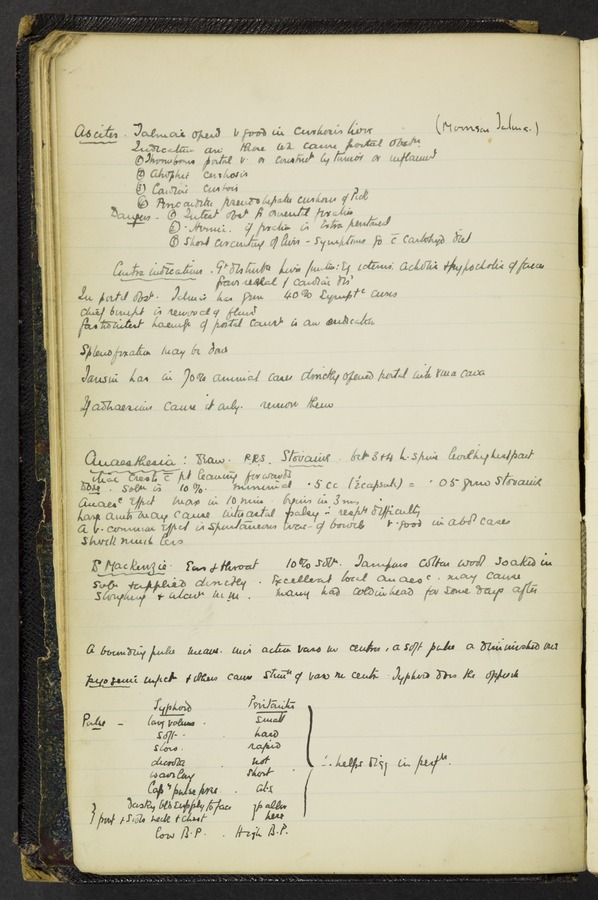 Ascites. Talma's operd v good in cirrhosis liver (Morrison Talma.)
Indication are those wh cause portal obstn
① Thrombosis portal v. or constrict by tumor or inflamed
② atrophic cirrhosis
③ Cardiac cirrhosis
④ Pericarditic pseudo hepatic cirrhosis of Pick
Dangers. ① Intest obst fr omental fixation
② Hernia. if fixation is extra peritoneal
③ Short circuiting of liver - symptoms fr c carbohyd diet
Contra indications. Gt disturb liver functn: Eg icterus acholia + hypocholia of faeces
grave renal / cardiac dis
In portal obst. Talma has given 40% symptc cures
chief benefit is removal of fluid
Gastrointest haemge of portal causn is an indication
Spleno fixation may be done
Tansini has in 70% animal cases directly opened portal into vena cava
If adhaesions cause it only. remove them
Anaesthesia: Braw. P.R.S. Stovaine. bet 3+4 l. spine level highest part
iliac crests c pt leaning forwards
Dose. Soln is 10%. minimal .5 cc (½ capsule) = .05 grm Stovaine
Anaesc effect max in 10 mins begins in 3 ms
Large amts may cause intercostal palsy ∴ respty difficulty
A v. common effect is spontaneous evac- of bowels v. good in abd cases
Shock much less
Dr Mackenzie. Ears & throat 10% soln. Tampons cotton wool soaked in
soln & applied directly. Excellent local anaesc. may cause
sloughing + ulcern m.m. many had cold in head for some days after
A bounding pulse means. incr action vaso mr centre, a soft pulse a diminished one
pyogenic infect & others cause stimn of vaso mr centre. Typhoid does the opposite
Typhoid Peritonitis
Pulse - large volume. small
soft. hard
slow. rapid
dicrotic. not
wave long short
Capy pulse pres. abs
dusky bld supply to face pallor
} post & sides neck & chest here
Low B.P. High B.P.
∴ helps diag in perfn.